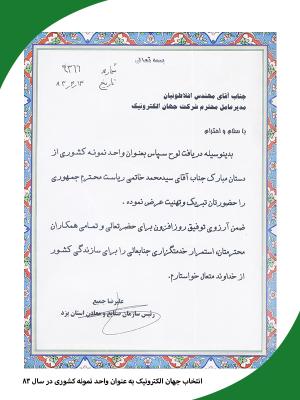 بسمه تعالی
شماره ۹۳۶۶
تاریخ ۸۳،۳،۱۳
جناب آقای مهندس افلاطونیان
مدیرعامل محترم شرکت جهان الکترونیک
با سلام و احترام
بدینوسیله دریافت لوح سپاس بعنوان واحد نمونه کشوری از
دستان مبارک جناب آقای سیدمحمد خاتمی ریاست محترم جمهوری
را حضورتان تبریک و تهنیت عرض نموده .
ضمن آرزوی توفیق روزافزون برای حضرتعالی و تمامی همکاران
محترمتان، استمرار خدمتگزاری جنابعالی را برای سازندگی کشور
از خداوند متعال خواستارم.
علیرضا جمیع
رئیس سازمان صنایع و معادن استان یزد
انتخاب جهان الکترونیک به عنوان واحد نمونه کشوری در سال ۸۳